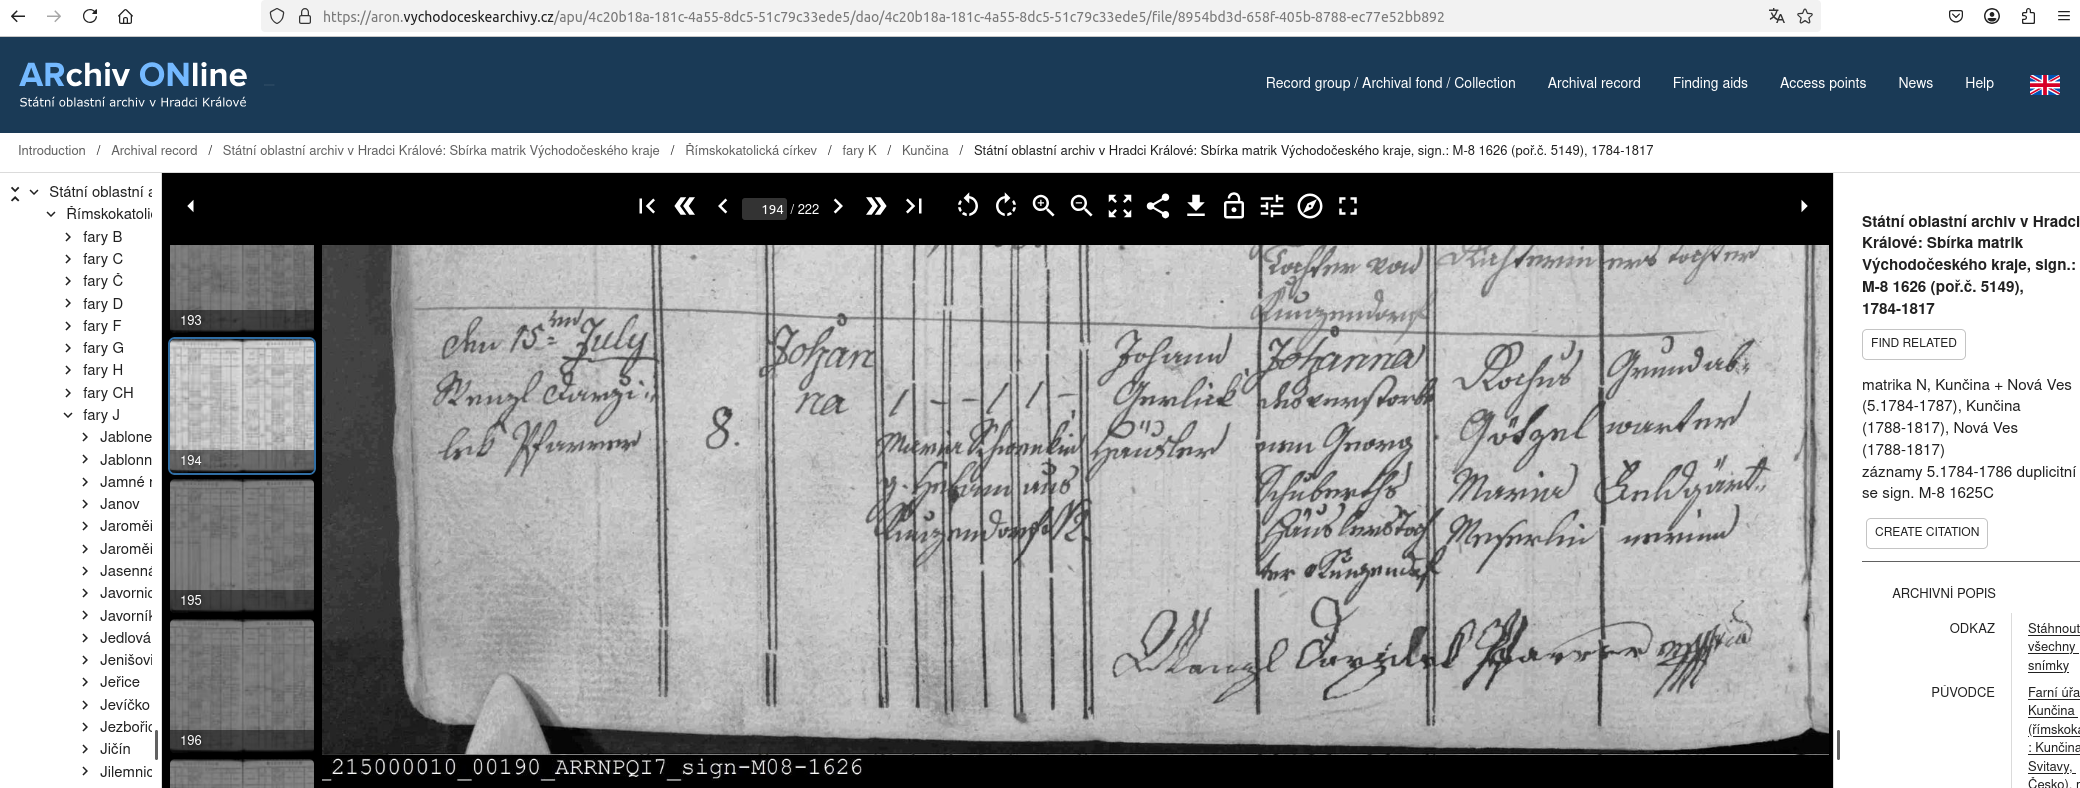 https://aron.vychodoceskearchivy.cz/apu/4c20b18a-181c-4a55-8dc5-51c79c33ede5/dao/4c20b18a-181c-4a55-8dc5-51c79c33ede5/file/8954bd3d-658f-405b-8788-ec77e52bb892
ARchiv ONline
Státní oblastní archiv v Hradci Králové
Record group / Archival fond / Collection
Archival record
Finding aids
Access points
News
Help
Introduction / Archival record / Státní oblastní archiv v Hradci Králové: Sbírka matrik Východočeského kraje / Římskokatolická církev / fary K / Kunčina / Státní oblastní archiv v Hradci Králové: Sbírka matrik Východočeského kraje, sign.: M-8 1626 (poř.č. 5149), 1784-1817
Státní oblastní a
Římskokatoli
fary B
fary C
fary Č
fary D
fary F
fary G
fary H
fary CH
fary J
Jablone
Jablonn
Jamné r
Janov
Jaroměi
Jaroměi
Jasenná
Javornic
Javorník
Jedlová
Jenišovi
Jeřice
Jevíčko
Jezbořic
Jičín
Jilemnic
194 / 222
193
194
195
196
Tochter von
Kunzendorf
den 15ten July
Wenzl
Pfarrer
8.
Johan
na
Maria
aus
Kunzendorf
Johann
Gerlich
Häusler
Johanna
des verstorb
nen Georg
Schuberths
Häuslers Toch
ter Kunzendorf
Rochus
Götzel
Maria
Meserlin
Grundab-
warter
Feldgärt-
nerinn
Wenzl Pfarrer
_215000010_00190_ARRNPQI7_sign-M08-1626
Státní oblastní archiv v Hradci
Králové: Sbírka matrik
Východočeského kraje, sign.:
M-8 1626 (poř.č. 5149),
1784-1817
FIND RELATED
matrika N, Kunčina + Nová Ves
(5.1784-1787), Kunčina
(1788-1817), Nová Ves
(1788-1817)
záznamy 5.1784-1786 duplicitní
se sign. M-8 1625C
CREATE CITATION
ARCHIVNÍ POPIS
ODKAZ
Stáhnout
všechny
snímky
PŮVODCE
Farní úřa
Kunčina
(římskoka
: Kunčina
Svitavy,
Česko), r